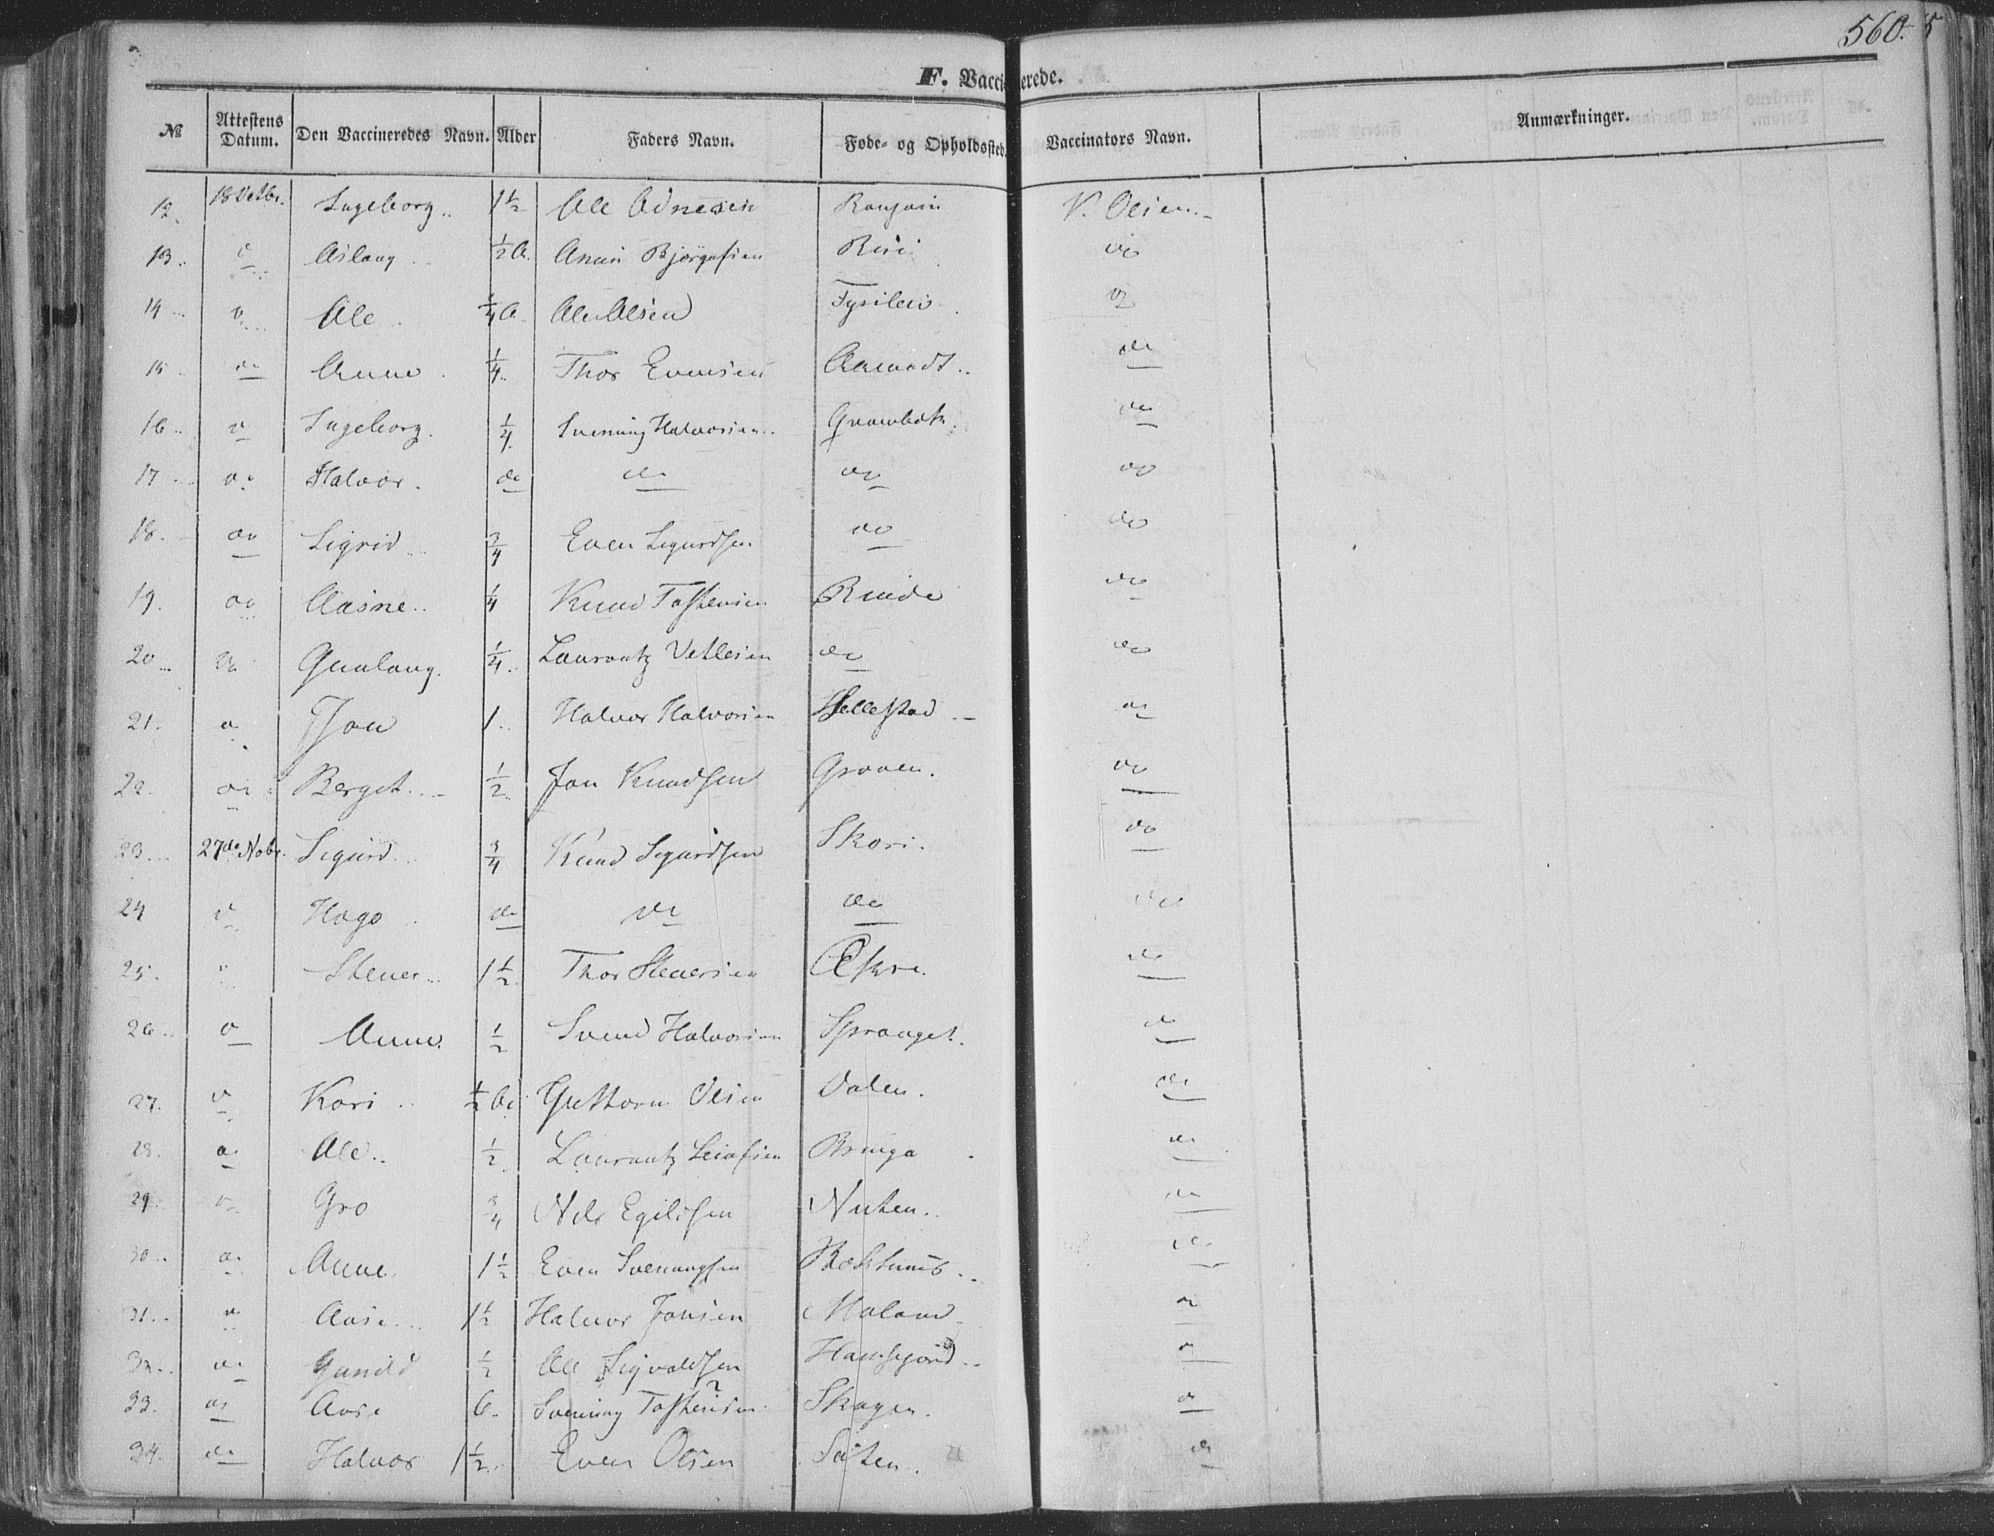 560.
F. Vaccinerede.
№ Attestens Datum. Den Vaccineredes Navn. Alder Faders Navn. Føde- og Opholdssted. Vaccinators Navn. Anmærkninger.
12. Ingeborg. 1½ Ole V. Olsen
13. Aslaug ½ A. Bjørgufsen
14. do Ole ¼ Ole Olsen do
15. do Anne ¼ Thor Evensen do
16. do Ingeborg. ¼ Svenning Halvorsen do
17 do Halvor. do do do do
18. do Sigrid ¾ Even Sigurdsen do do
19. do Aasne. ¼ Knud Tostensen Rinde do
20 do Gunlaug. ¼ Laurantz Vetlesen do do
21. do Jon 1. Halvor Halvorsen Hellestad do
22. do Berget. ½ Jon Knudsen Groven. do
23. 27de Nobr. Sigurd ¾ Knud Sigurdsen Skori. do
24 do Hæge do do do do
25. do Stener 1½ Thor Stenersen do
26. do Anne. ½ Svend Halvorsen Spranget. do
27. do Kari ½ Guttorm Olsen Dalen. do
28. do Ole ½ Laurantz Leifsen Bringa do
29. do Gro ¾ Nils Egilsen Nuten. do
30. do Anne. 1½ Even Svenungsen do
31. do Aase 1½ Halvor Jonsen Moland do
32. do Gunild ½ Ole Sigvaldsen do
33. do Aase 6. Svening Tostensen Skogen. do
34. do Halvor 1½ Even Olsen do